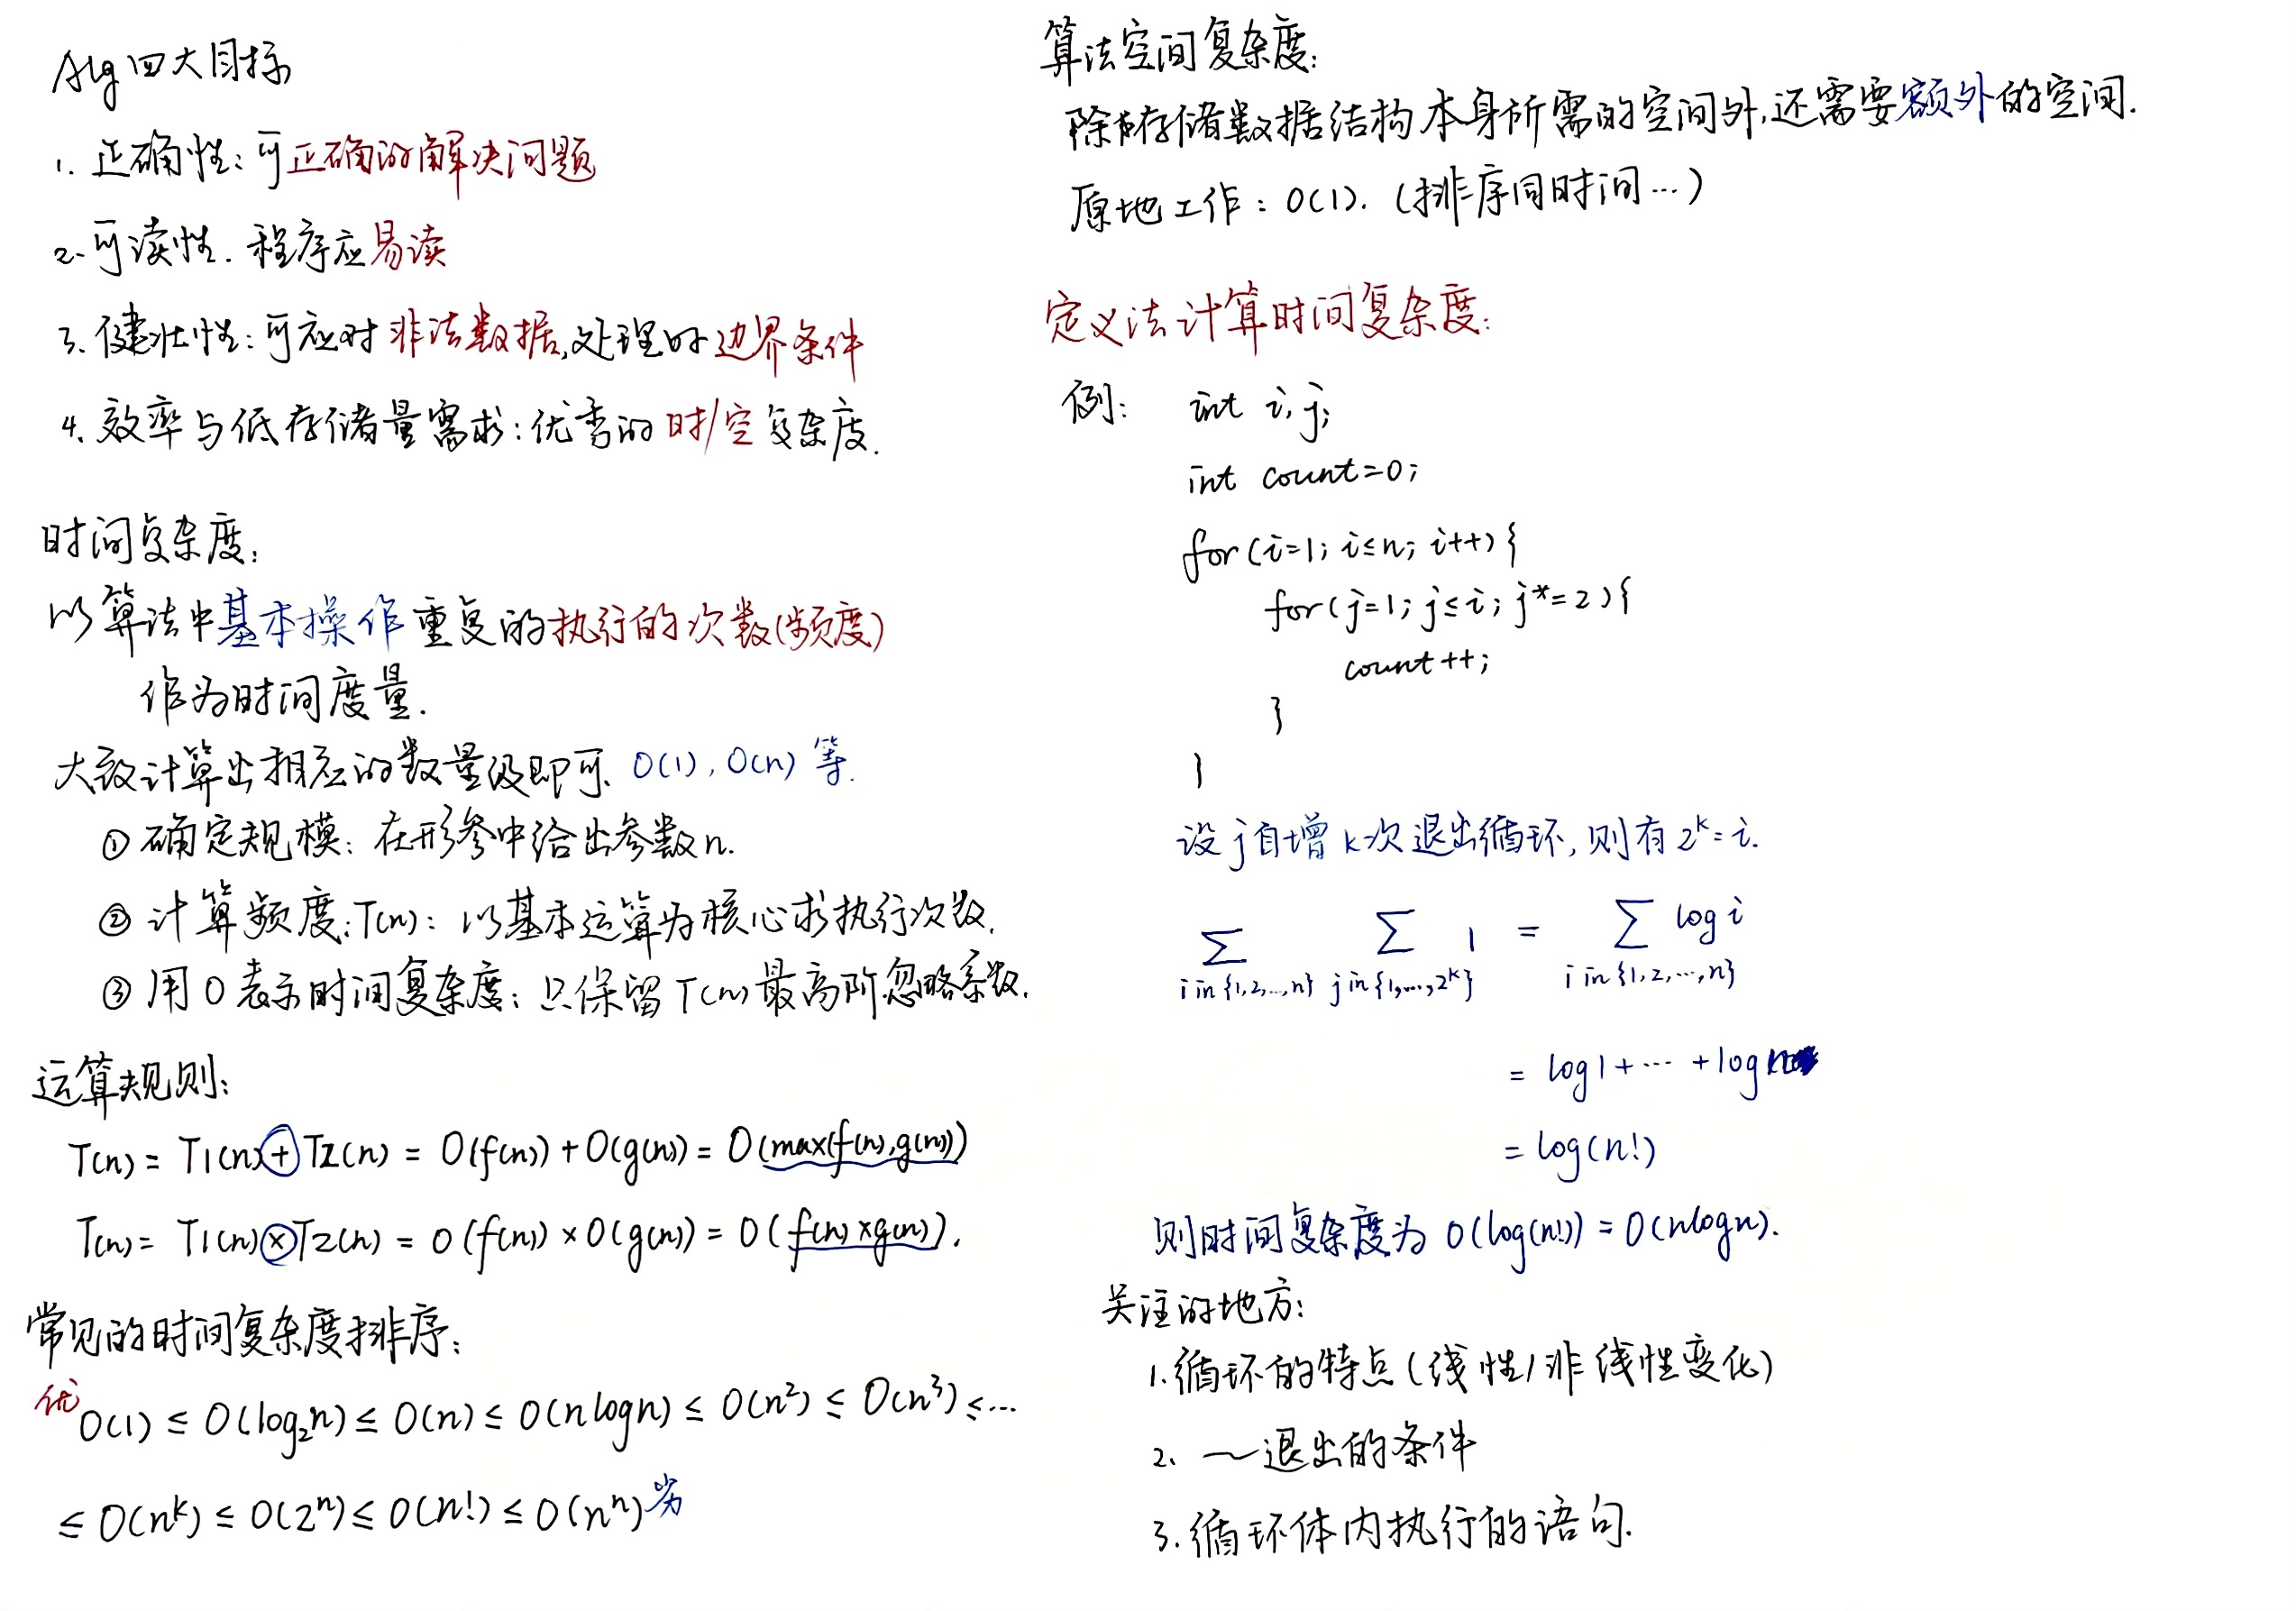 Alg四大目标
1. 正确性：可正确的解决问题
2. 可读性．程序应易读
3. 健壮性：可应对非法数据,处理好边界条件
4. 效率与低存储量需求：优秀的时/空复杂度.
时间复杂度：
以算法中基本操作重复的执行的次数(频度)
作为时间度量.
大致计算出相应的数量级即可. O(1), O(n) 等.
① 确定规模：在形参中给出参数n.
② 计算频度:T(n)：以基本运算为核心求执行次数.
③ 用O表示时间复杂度：只保留T(n)最高阶忽略系数.
运算规则：
T(n) = T1(n) + T2(n) = O(f(n)) + O(g(n)) = O(max(f(n), g(n)))
T(n) = T1(n) × T2(n) = O(f(n)) × O(g(n)) = O(f(n) × g(n)).
常见的时间复杂度排序：
优 O(1) ≤ O(log₂n) ≤ O(n) ≤ O(nlogn) ≤ O(n²) ≤ O(n³) ≤ ...
≤ O(nᵏ) ≤ O(2ⁿ) ≤ O(n!) ≤ O(nⁿ) 劣
算法空间复杂度：
除存储数据结构本身所需的空间外,还需要额外的空间.
原地工作：O(1). (排序同时间...)
定义法计算时间复杂度：
例： int i, j;
int count=0;
for(i=1; i≤n; i++){
for(j=1; j≤i; j*=2){
count++;
}
}
设j自增k次退出循环, 则有2ᵏ=i.
∑ ∑ 1 = ∑ log i
i in {1,2,...,n} j in {1,...,2ᵏ} i in {1,2,...,n}
= log1 + ... + log n
= log(n!)
则时间复杂度为 O(log(n!)) = O(nlogn).
关注的地方：
1. 循环的特点(线性/非线性变化)
2. ～退出的条件
3. 循环体内执行的语句.